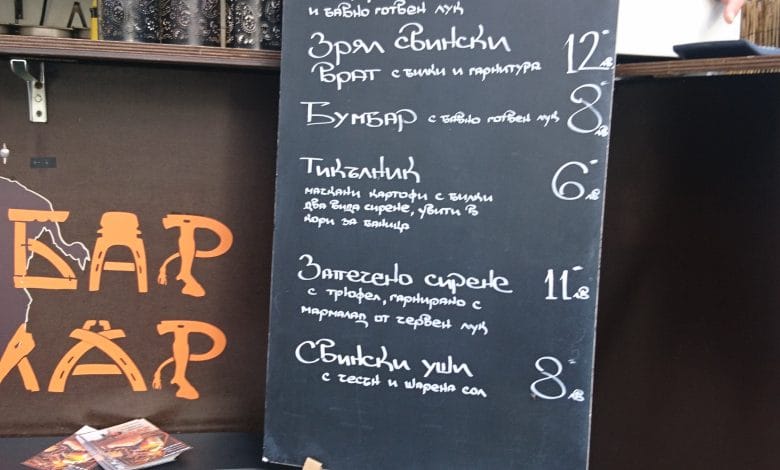 и бавно готвен лук
Зрял свински 12 лв
врат с билки и гарнитура
Бумбар с бавно готвен лук 8 лв
Тикълник 6 лв
мачкани картофи с билки
два вида сирене, увити в
кори за баница
Запечено сирене 11 лв
с трюфел, гарнирано с
мармалад от червен лук
Свински уши 8 лв
с чесън и шарена сол
БАР
ЛАР